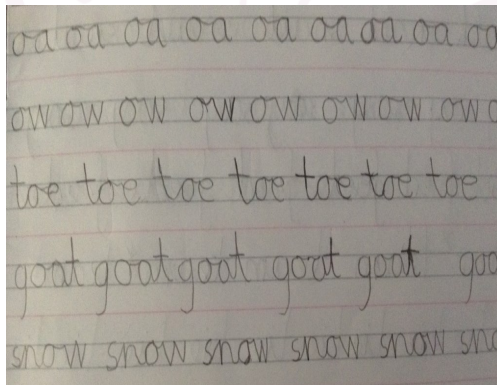 oa oa oa oa oa oa oa oa oa
ow ow ow ow ow ow ow ow
toe toe toe toe toe toe toe
goat goat goat goat goat goa
snow snow snow snow snow sno